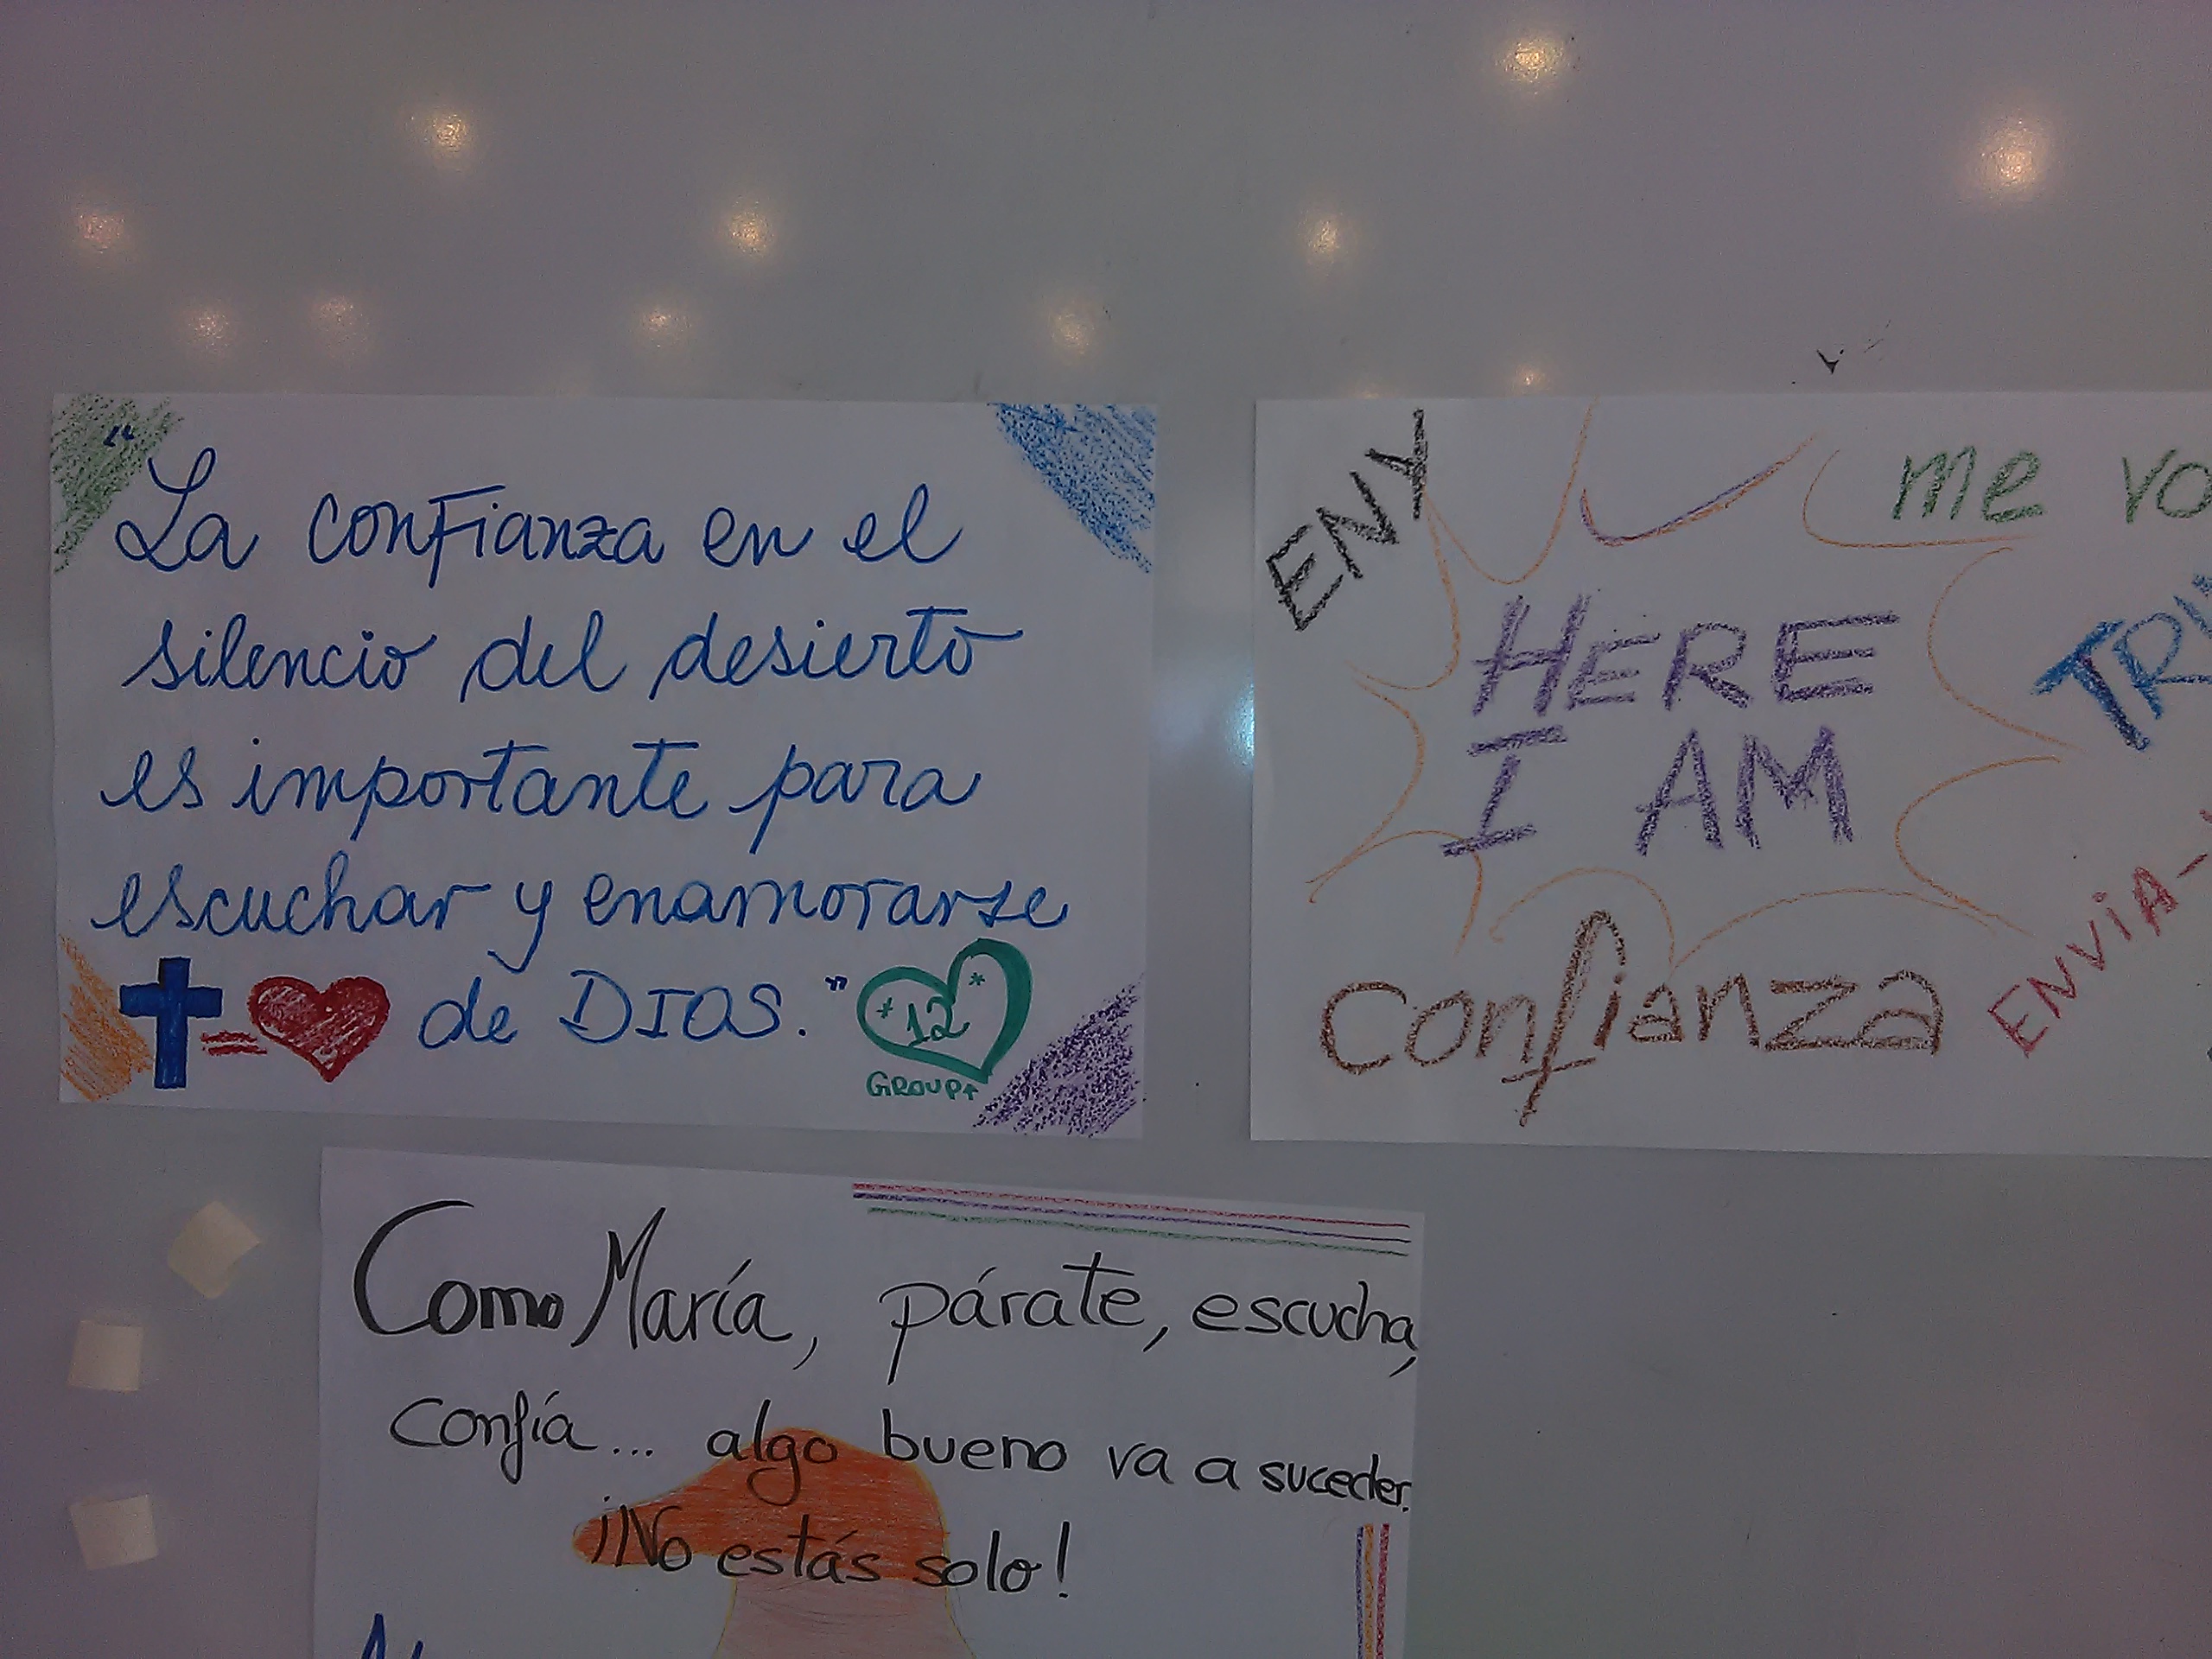 "La confianza en el
silencio del desierto
es importante para
escuchar y enamorarse
de DIOS."
*12*
GROUP
ENY
me vo
HERE
I AM
TRU
ENVIA-
confianza
Como María, párate, escucha,
confía... algo bueno va a suceder.
¡No estás solo!